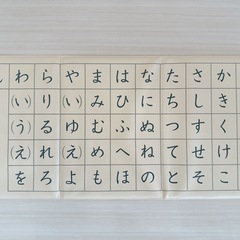 かきくけこ
さしすせそ
たちつてと
なにぬねの
はひふへほ
まみむめも
や(い)ゆ(え)よ
らりるれろ
わ(い)(う)(え)を